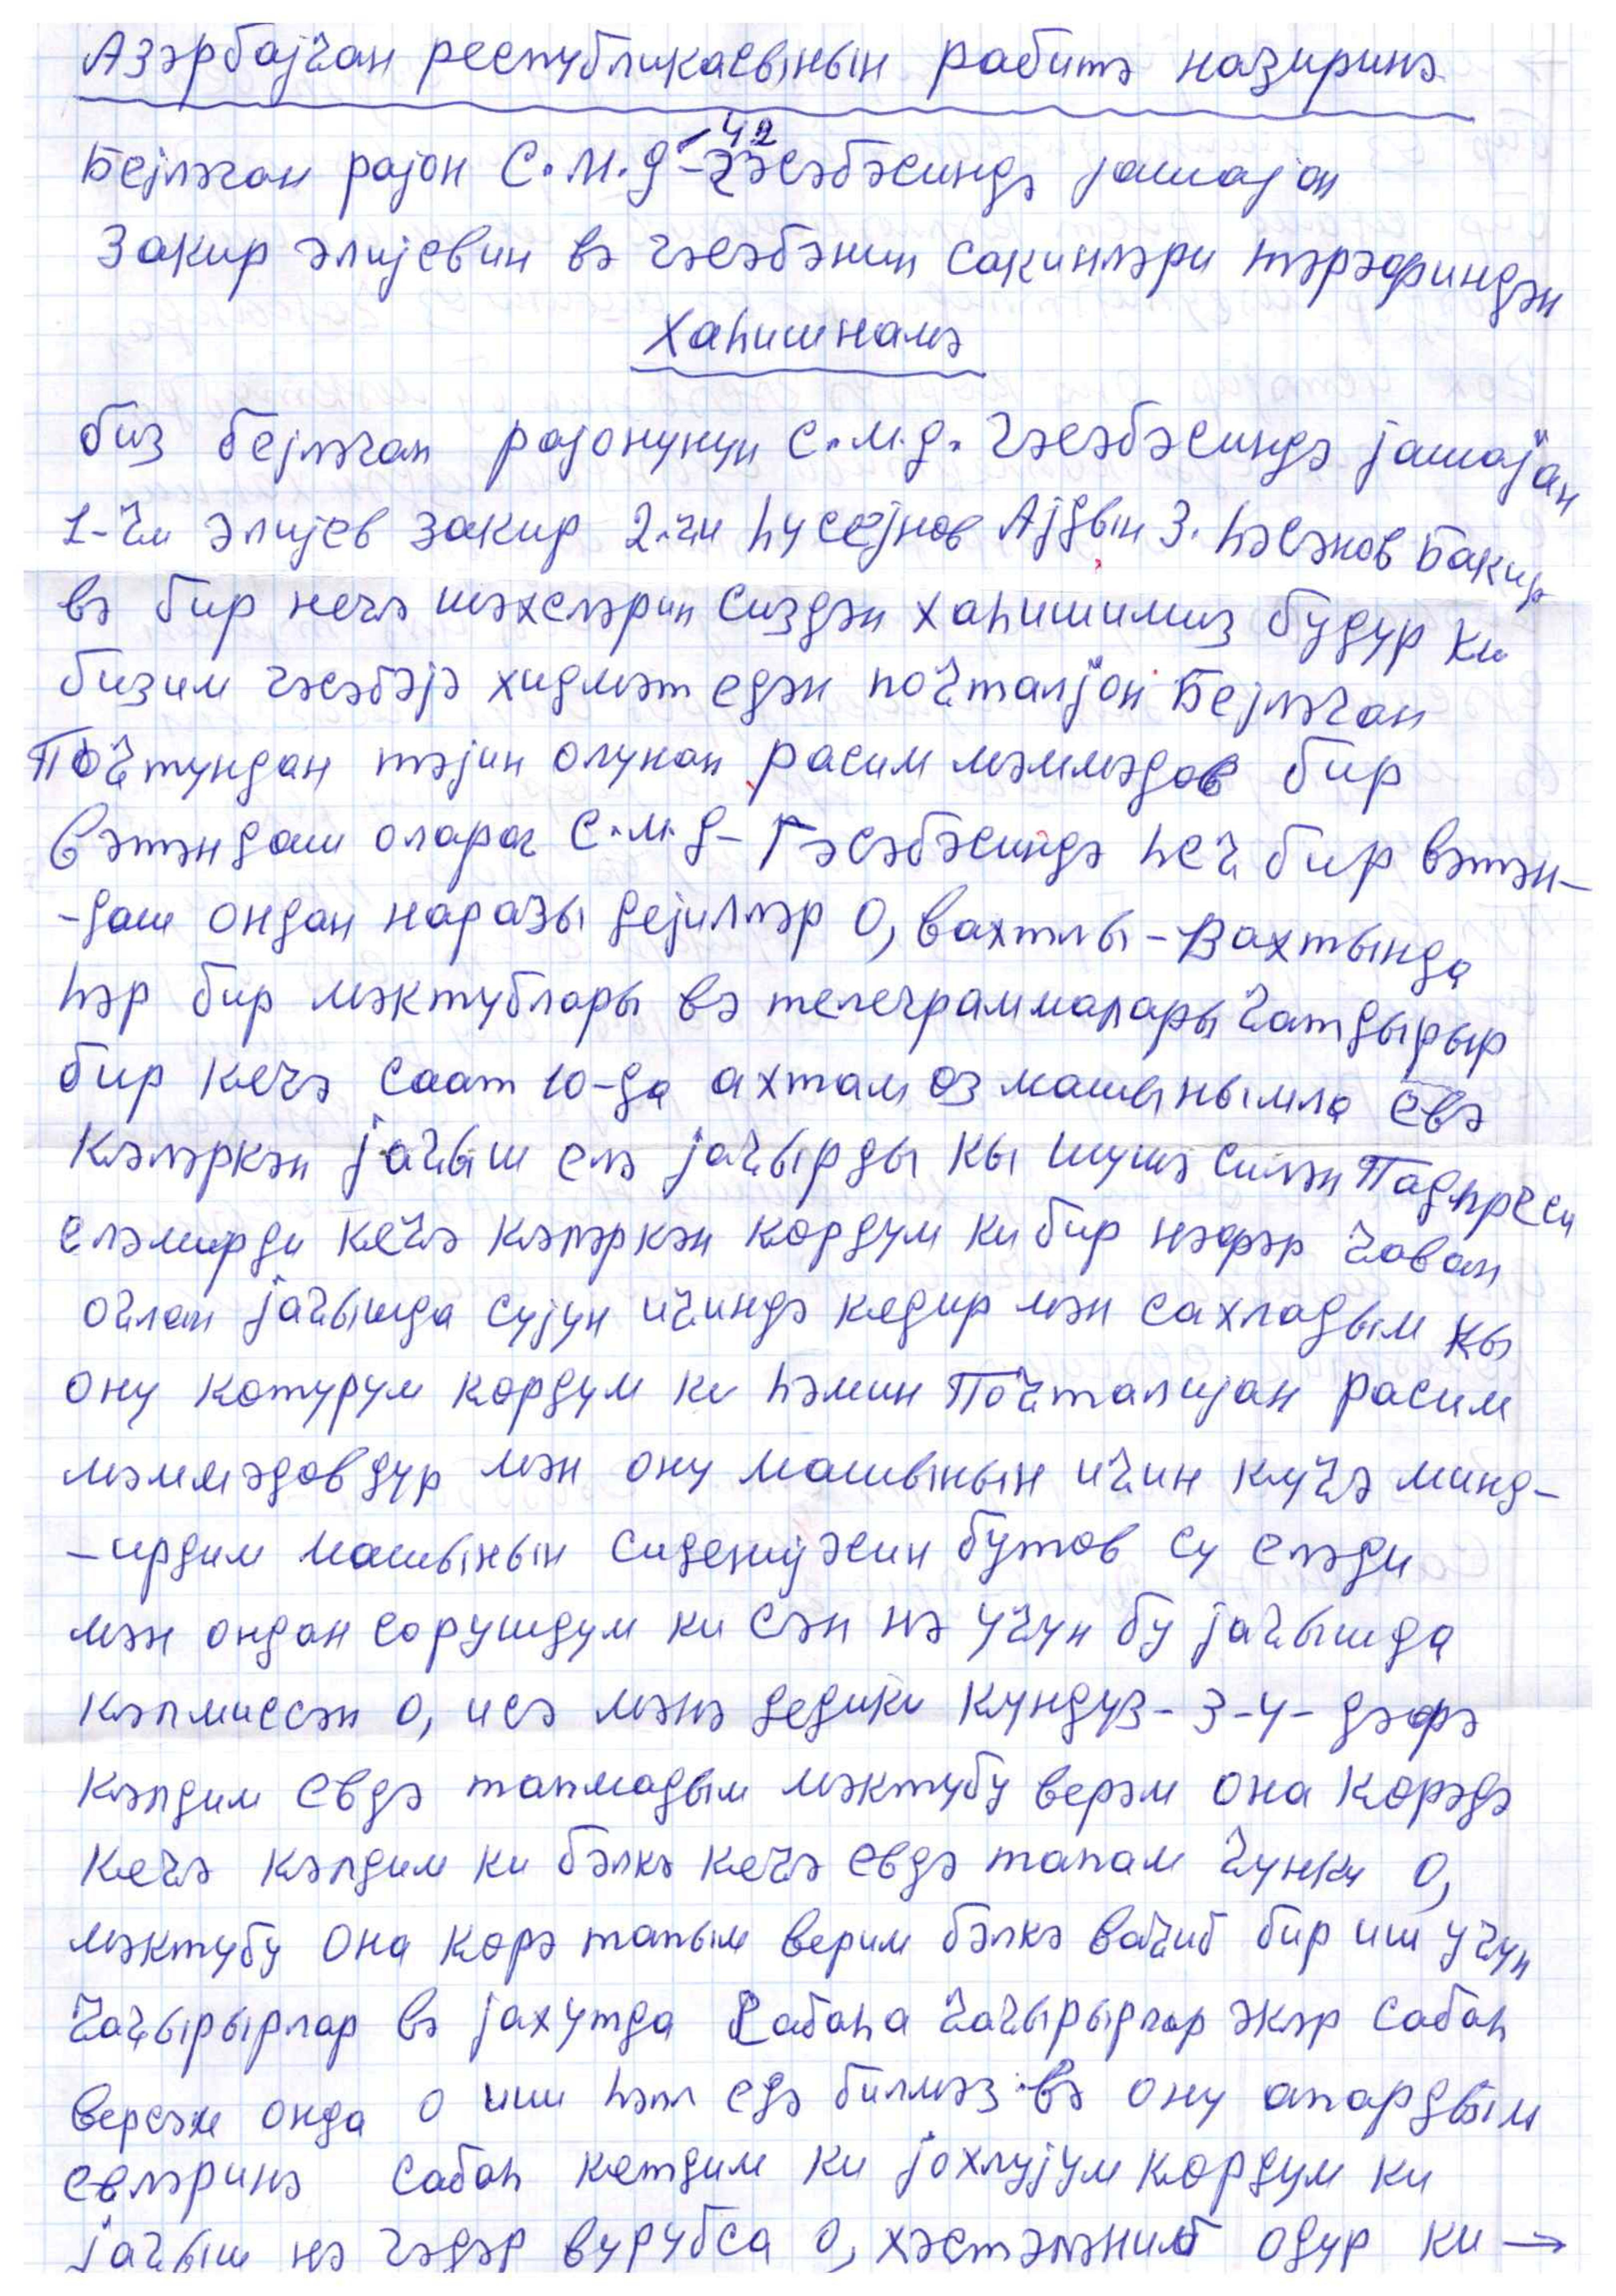 Азәрбајҹан республикасынын рабитә назиринә
Бејләган рајон С.М.Д-42 гәсәбәсиндә јашајан
Закир Әлијевин вә гәсәбәнин сакинләри тәрәфиндән
Хаһишнамә
биз бејләган рајонунун С.М.Д. гәсәбәсиндә јашајан
1-ҹи Әлијев Закир 2.чи һүсејнов Ајдын 3. һәсәнов Бакир
вә бир нечә шәхсләрин Сиздән хаһишимиз будур ки
бизим гәсәбәјә хидмәт едән почталјон Бејләган
Почтундан тәјин олунан расим мәммәдов бир
вәтәндаш олараг С.М.Д- Гәсәбәсиндә һеч бир вәтән-
-даш ондан наразы дејилләр О, вахтлы-Вахтында
һәр бир мәктублары вә телеграммалары чатдырыр
бир кечә саат 10-да ахшам өз машынымла евә
Кәләркән јағыш елә јағырды кы шушә силән
еләмирди кечә кәләркән көрдүм ки бир нәфәр ҹаван
оғлан јағышда сујун ичиндә кедир мән сахладым кы
ону көтүрүм көрдүм ки һәмин Почталијан Расим
мәммәдовдур мән ону машынын ичин күчә минд-
-ирдим машынын бүтөв су еләди
мән ондан сорушдум ки сән нә үчүн бу јағышда
Кәлмиссән О, исә мәнә дедики Күндүз-3-4-дәфә
Кәлдим евдә тапмадым мәктубу верәм она көрәдә
кечә кәлдим ки бәлкә кечә евдә тапам чүнки О,
мәктубу она көрә тапым верим бәлкә ваҹиб бир иш үчүн
чағырырлар вә јахутда Сабаһа чағырырлар әкәр сабаһ
версәм онда о иш һәлл едә билмәз вә ону апардым
евләринә сабаһ кетдим ки јохлујум көрдүм ки
јағыш нә гәдәр вурубса О, хәстәләниб одур ки →